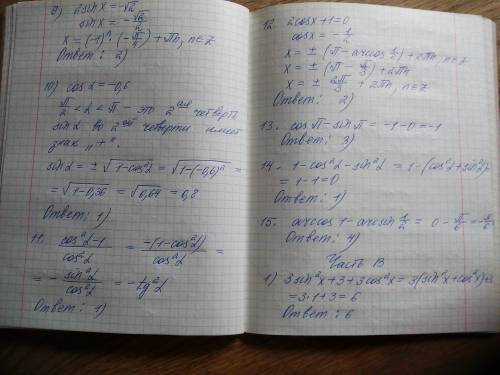 9) 2sinx = -√2
sinx = -√2/2
x = (-1)ⁿ·(-π/4) + πn, n∈Z
Ответ: 2)
10) cos α = -0,6
π/2 < α < π - это 2ая четверть
sin α во 2ой четверти имеет
знак "+".
sin α = ±√(1-cos²α) = √(1-(-0,6)²) =
= √(1-0,36) = √0,64 = 0,8
Ответ: 1)
11. (cos²α-1)/cos²α = -(1-cos²α)/cos²α =
= -sin²α/cos²α = -tg²α
Ответ: 1)
12. 2cosx+1=0
cosx = -1/2
x = ±(π-arccos 1/2)+2πn, n∈Z
x = ±(π-π/3)+2πn
x = ± 2π/3 + 2πn, n∈Z
Ответ: 2)
13. cosπ-sinπ = -1-0=-1
Ответ: 3)
14. 1-cos²α-sin²α = 1-(cos²α+sin²α)=
= 1-1=0
Ответ: 1)
15. arccos1-arcsin 1/2 = 0-π/6=-π/6
Ответ: 4)
Часть В
1) 3sin²x+3+3cos²x = 3(sin²x+cos²x)+3
=3·1+3=6
Ответ: 6